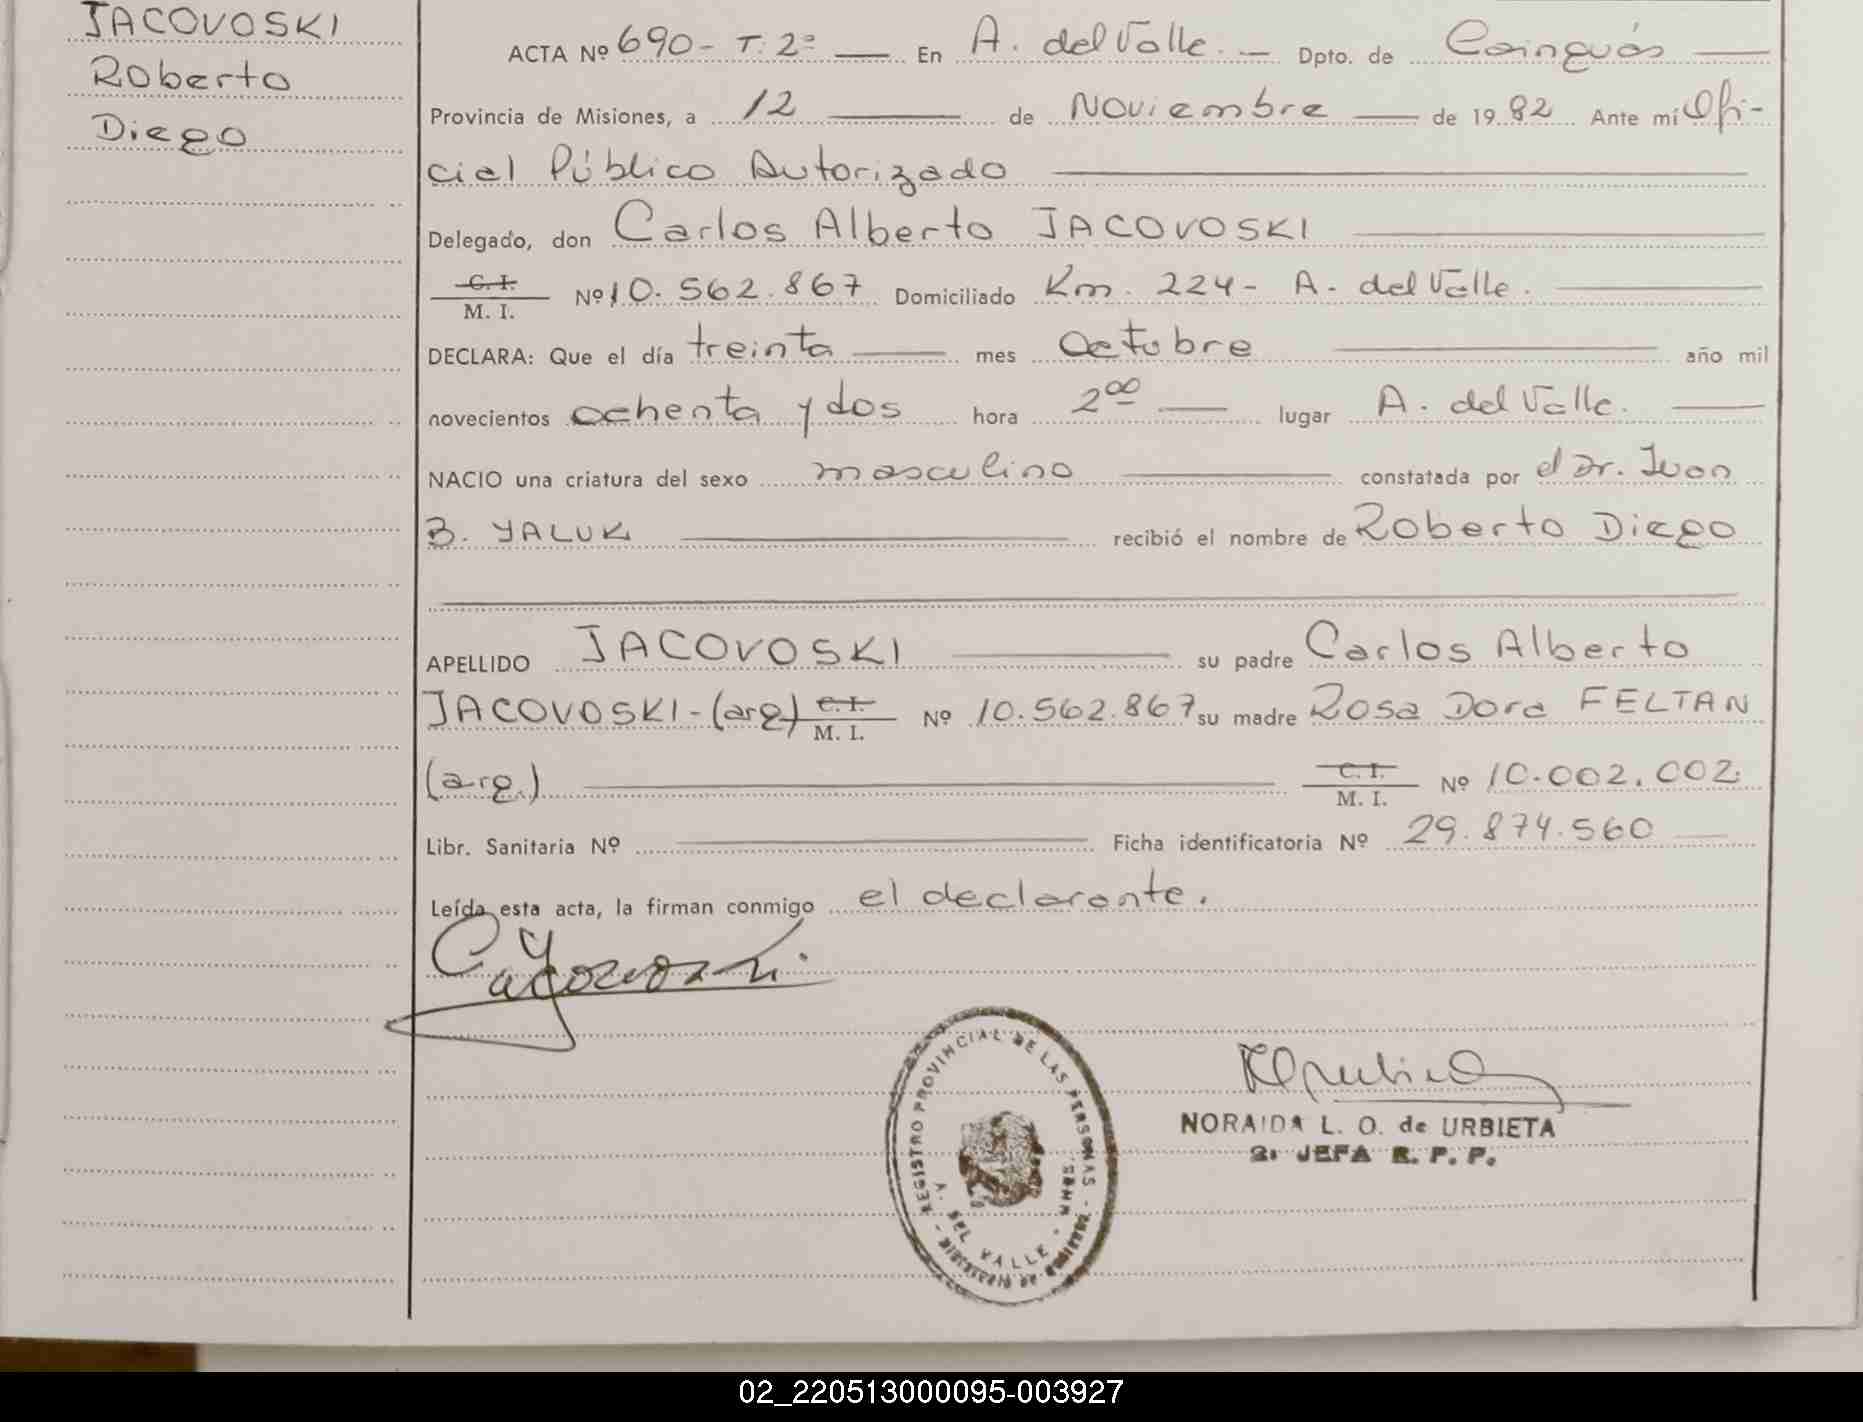 JACOVOSKI
Roberto
Diego
ACTA Nº 690- T. 2º — En A. del Valle. — Dpto. de Cainguás —
Provincia de Misiones, a 12 — de Noviembre — de 1982 Ante mi Ofi-
cial Público Autorizado —
Delegado, don Carlos Alberto JACOVOSKI —
C. I.
M. I. Nº 10.562.867 Domiciliado Km. 224- A. del Valle. —
DECLARA: Que el día treinta — mes Octubre — año mil
novecientos ochenta y dos hora 2⁰⁰ — lugar A. del Valle. —
NACIO una criatura del sexo masculino — constatada por el Dr. Ivan
B. YALUK — recibió el nombre de Roberto Diego
APELLIDO JACOVOSKI — su padre Carlos Alberto
JACOVOSKI-(arg) C. I. M. I. Nº 10.562.867 su madre Rosa Dora FELTAN
(arg.) — C. I. M. I. Nº 10.002.002.
Libr. Sanitaria Nº — Ficha identificatoria Nº 29.874.560 —
Leída esta acta, la firman conmigo el declarante.
REGISTRO PROVINCIAL DE LAS PERSONAS
A. DEL VALLE
NORAIDA L. O. de URBIETA
2ª JEFA R. P. P.
02_220513000095-003927